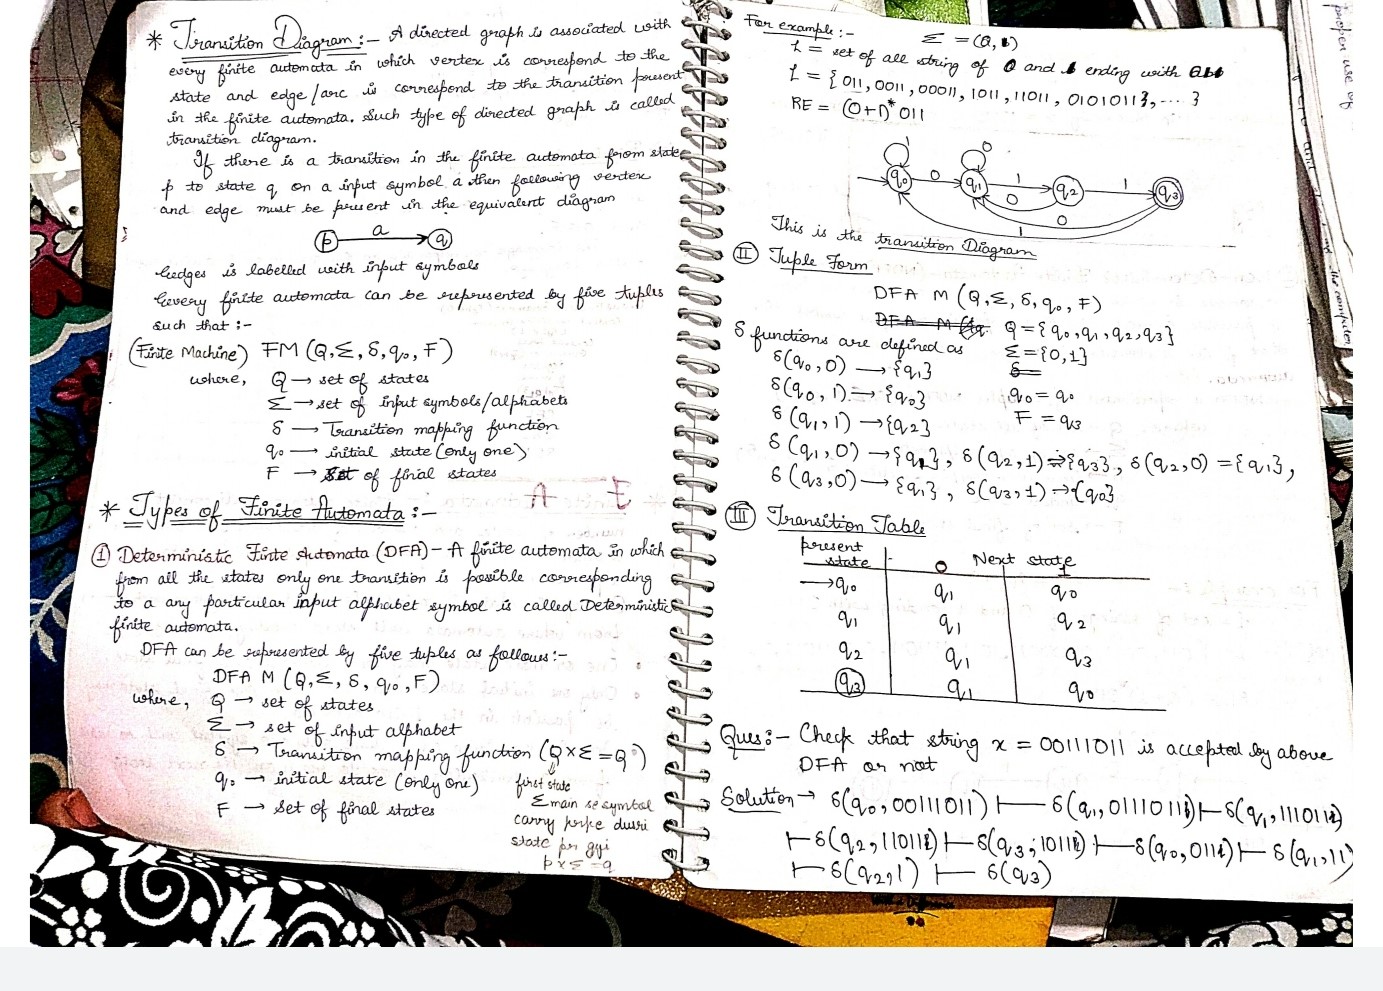 * Transition Diagram :- A directed graph is associated with
every finite automata in which vertex is correspond to the
state and edge/arc is correspond to the transition present
in the finite automata. Such type of directed graph is called
transition diagram.
If there is a transition in the finite automata from state
p to state q on a input symbol a then following vertex
and edge must be present in the equivalent diagram
p a q
Eedges is labelled with input symbols
Eevery finite automata can be represented by five tuples
such that :-
(Finite Machine) FM (Q, Σ, δ, q₀, F)
where, Q → set of states
Σ → set of input symbols/alphabets
δ → Transition mapping function
q₀ → initial state (only one)
F → Set of final states
A E
* Types of Finite Automata :-
① Deterministic Finte Automata (DFA) - A finite automata in which
from all the states only one transition is possible corresponding
to a any particular input alphabet symbol is called Deterministic
finite automata.
DFA can be represented by five tuples as follows :-
DFA M (Q, Σ, δ, q₀, F)
where, Q → set of states
Σ → set of input alphabet
δ → Transition mapping function (Q × Σ = Q)
q₀ → initial state (only one)
F → set of final states
first state
Σ main se symbol
carry krke dusri
state pr gyi
p × ≤ = q
For example :- Σ = (0, 1)
L = set of all string of 0 and 1 ending with 011
L = { 011, 0011, 00011, 1011, 11011, 0101011}, ... }
RE = (0+1)* 011
1 0
q₀ 0 q₁ 1 q₂ 1 q₃
0
0
1
This is the transition Diagram
Ⅱ Tuple Form
DFA M (Q, Σ, δ, q₀, F)
DFA M (q
Q = {q₀, q₁, q₂, q₃}
δ functions are defined as Σ = {0, 1}
δ(q₀, 0) → {q₁} δ =
δ(q₀, 1) → {q₀} q₀ = q₀
δ (q₁, 1) → {q₂} F = q₃
δ (q₁, 0) → {q₁}, δ(q₂, 1) ⇒ {q₃}, δ(q₂, 0) = {q₁},
δ (q₃, 0) → {q₁}, δ(q₃, 1) → {q₀}
Ⅲ Transition Table
present state Next state
0 1
→q₀ q₁ q₀
q₁ q₁ q₂
q₂ q₁ q₃
q₃ q₁ q₀
Ques :- Check that string x = 00111011 is accepted by above
DFA or not
Solution → δ(q₀, 00111011) ⊢ δ(q₁, 0111011) ⊢ δ(q₁, 111011)
⊢ δ(q₂, 11011) ⊢ δ(q₃, 1011) ⊢ δ(q₀, 011) ⊢ δ(q₁, 11)
⊢ δ(q₂, 1) ⊢ δ(q₃)